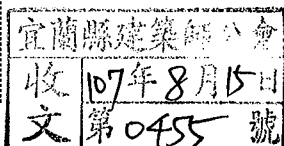 宜蘭縣建築師公會
收文
107年8月15日
第0455號